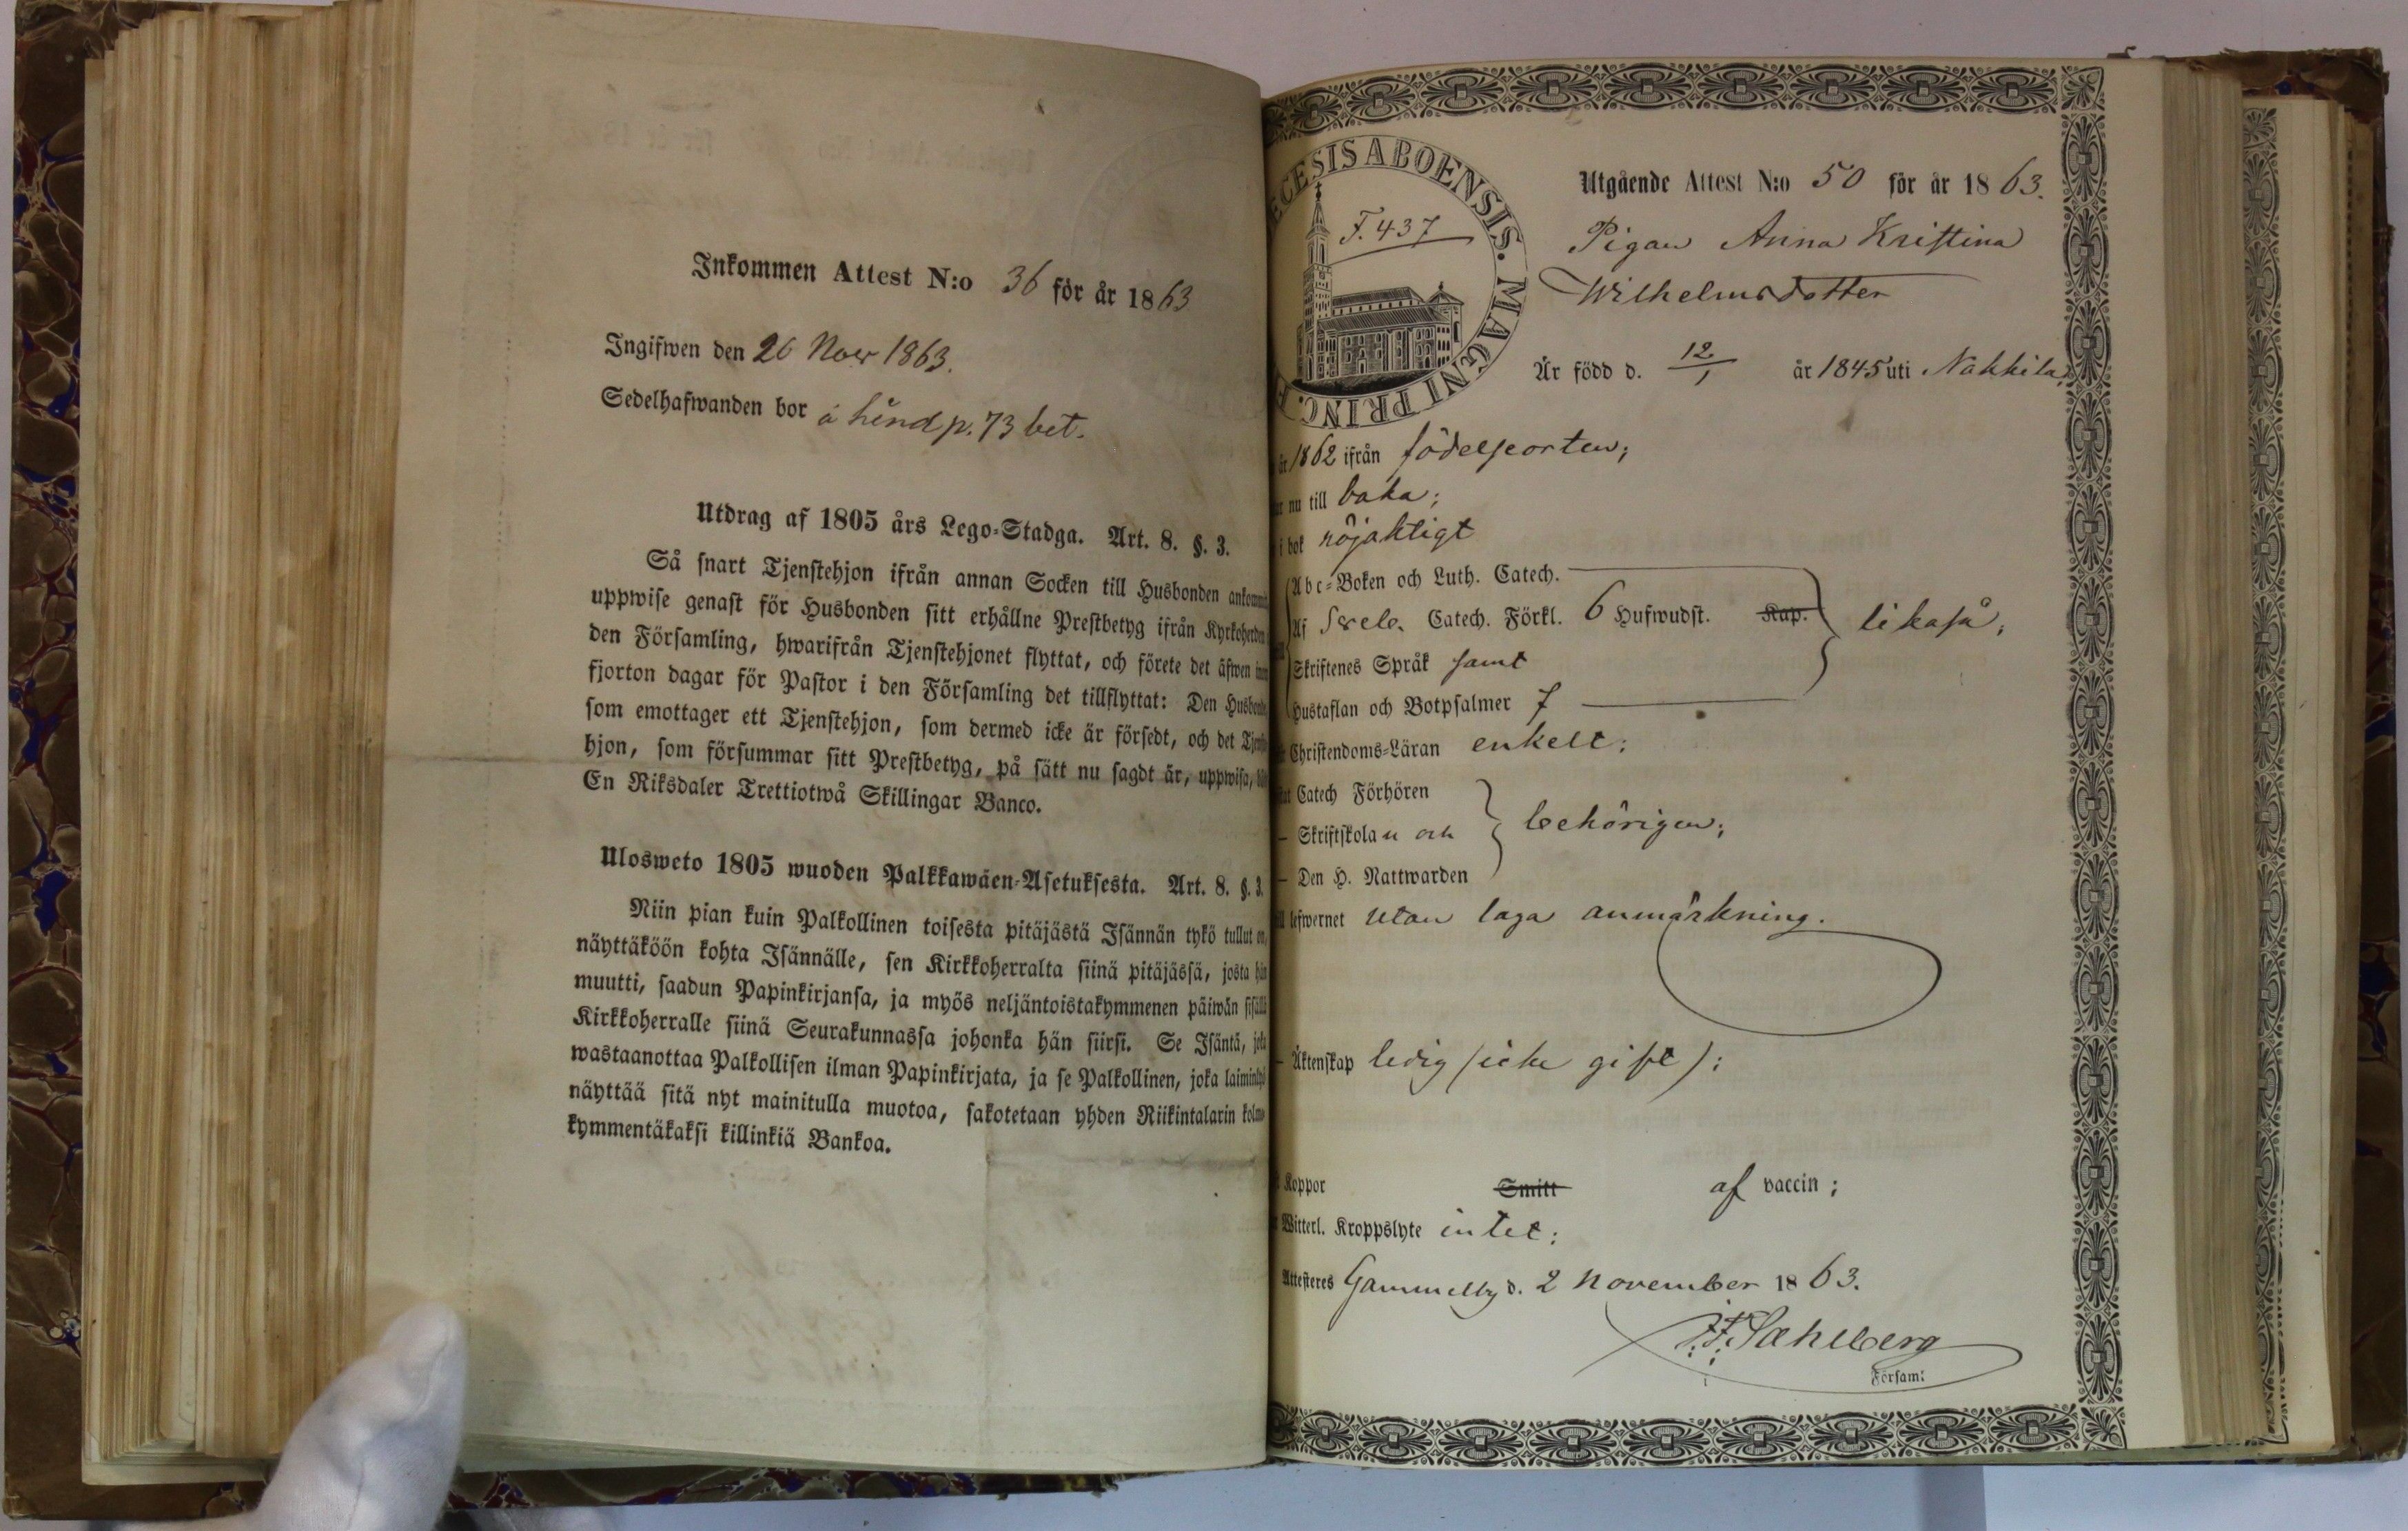 Inkommen Attest N:o 36 för år 1863
Ingifwen den 26 Nov 1863.
Sedelhafwanden bor å händ p. 73 bet.
Utdrag af 1805 års Lego-Stadga. Art. 8. §. 3.
Så snart Tjenstehjon ifrån annan Socken till Husbonden
uppwise genast för Husbonden sitt erhållne Prestbetyg ifrån Kyrkoherden
den Församling, hwarifrån Tjenstehjonet flyttat, och förete det äfwen
fjorton dagar för Pastor i den Församling det tillflyttat: Den
som emottager ett Tjenstehjon, som dermed icke är försedt, och det
hjon, som försummar sitt Prestbetyg, på sätt nu sagdt är, uppwisa,
En Riksdaler Trettiotwå Skillingar Banco.
Ulosweto 1805 wuoden Palkkawäen-Asetuksesta. Art. 8. §. 3.
Niin pian kuin Palkollinen toisesta pitäjästä Isännän tykö tullut on,
näyttäköön kohta Isännälle, sen Kirkkoherralta siinä pitäjässä, josta hän
muutti, saadun Papinkirjansa, ja myös neljäntoistakymmenen päiwän sisällä
Kirkkoherralle siinä Seurakunnassa johonka hän siirsi. Se Isäntä, joka
wastaanottaa Palkollisen ilman Papinkirjata, ja se Palkollinen, joka
näyttää sitä nyt mainitulla muotoa, sakotetaan yhden Riikintalarin kolme-
kymmentäkaksi killinkiä Bankoa.
ECESIS ABOENSIS. MAGNI PRINC. F
F. 437
Utgående Attest N:o 50 för år 1863.
Pigan Anna Kristina
Wilhelmsdotter
Är född d. 12/1 år 1845 uti Nakkila,
år 1862 ifrån födelseorten;
nu till baka;
i bok nöjaktigt
Abc-Boken och Luth. Catech.
Af Sveb. Catech. Förkl. 6 Hufwudst. Kap. likaså;
Skriftenes Språk samt
Hustaflan och Botpsalmer 7
Christendoms-Läran enkelt;
Catech Förhören
— Skriftskolan och behörigen;
— Den H. Nattwarden
lefwernet utan laga anmärkning.
— Äktenskap ledig (icke gift);
Koppor Smitt af vaccin;
Witterl. Kroppslyte intet;
Attesteres Gammelby d. 2 November 1863.
F. Sahlberg
Församl